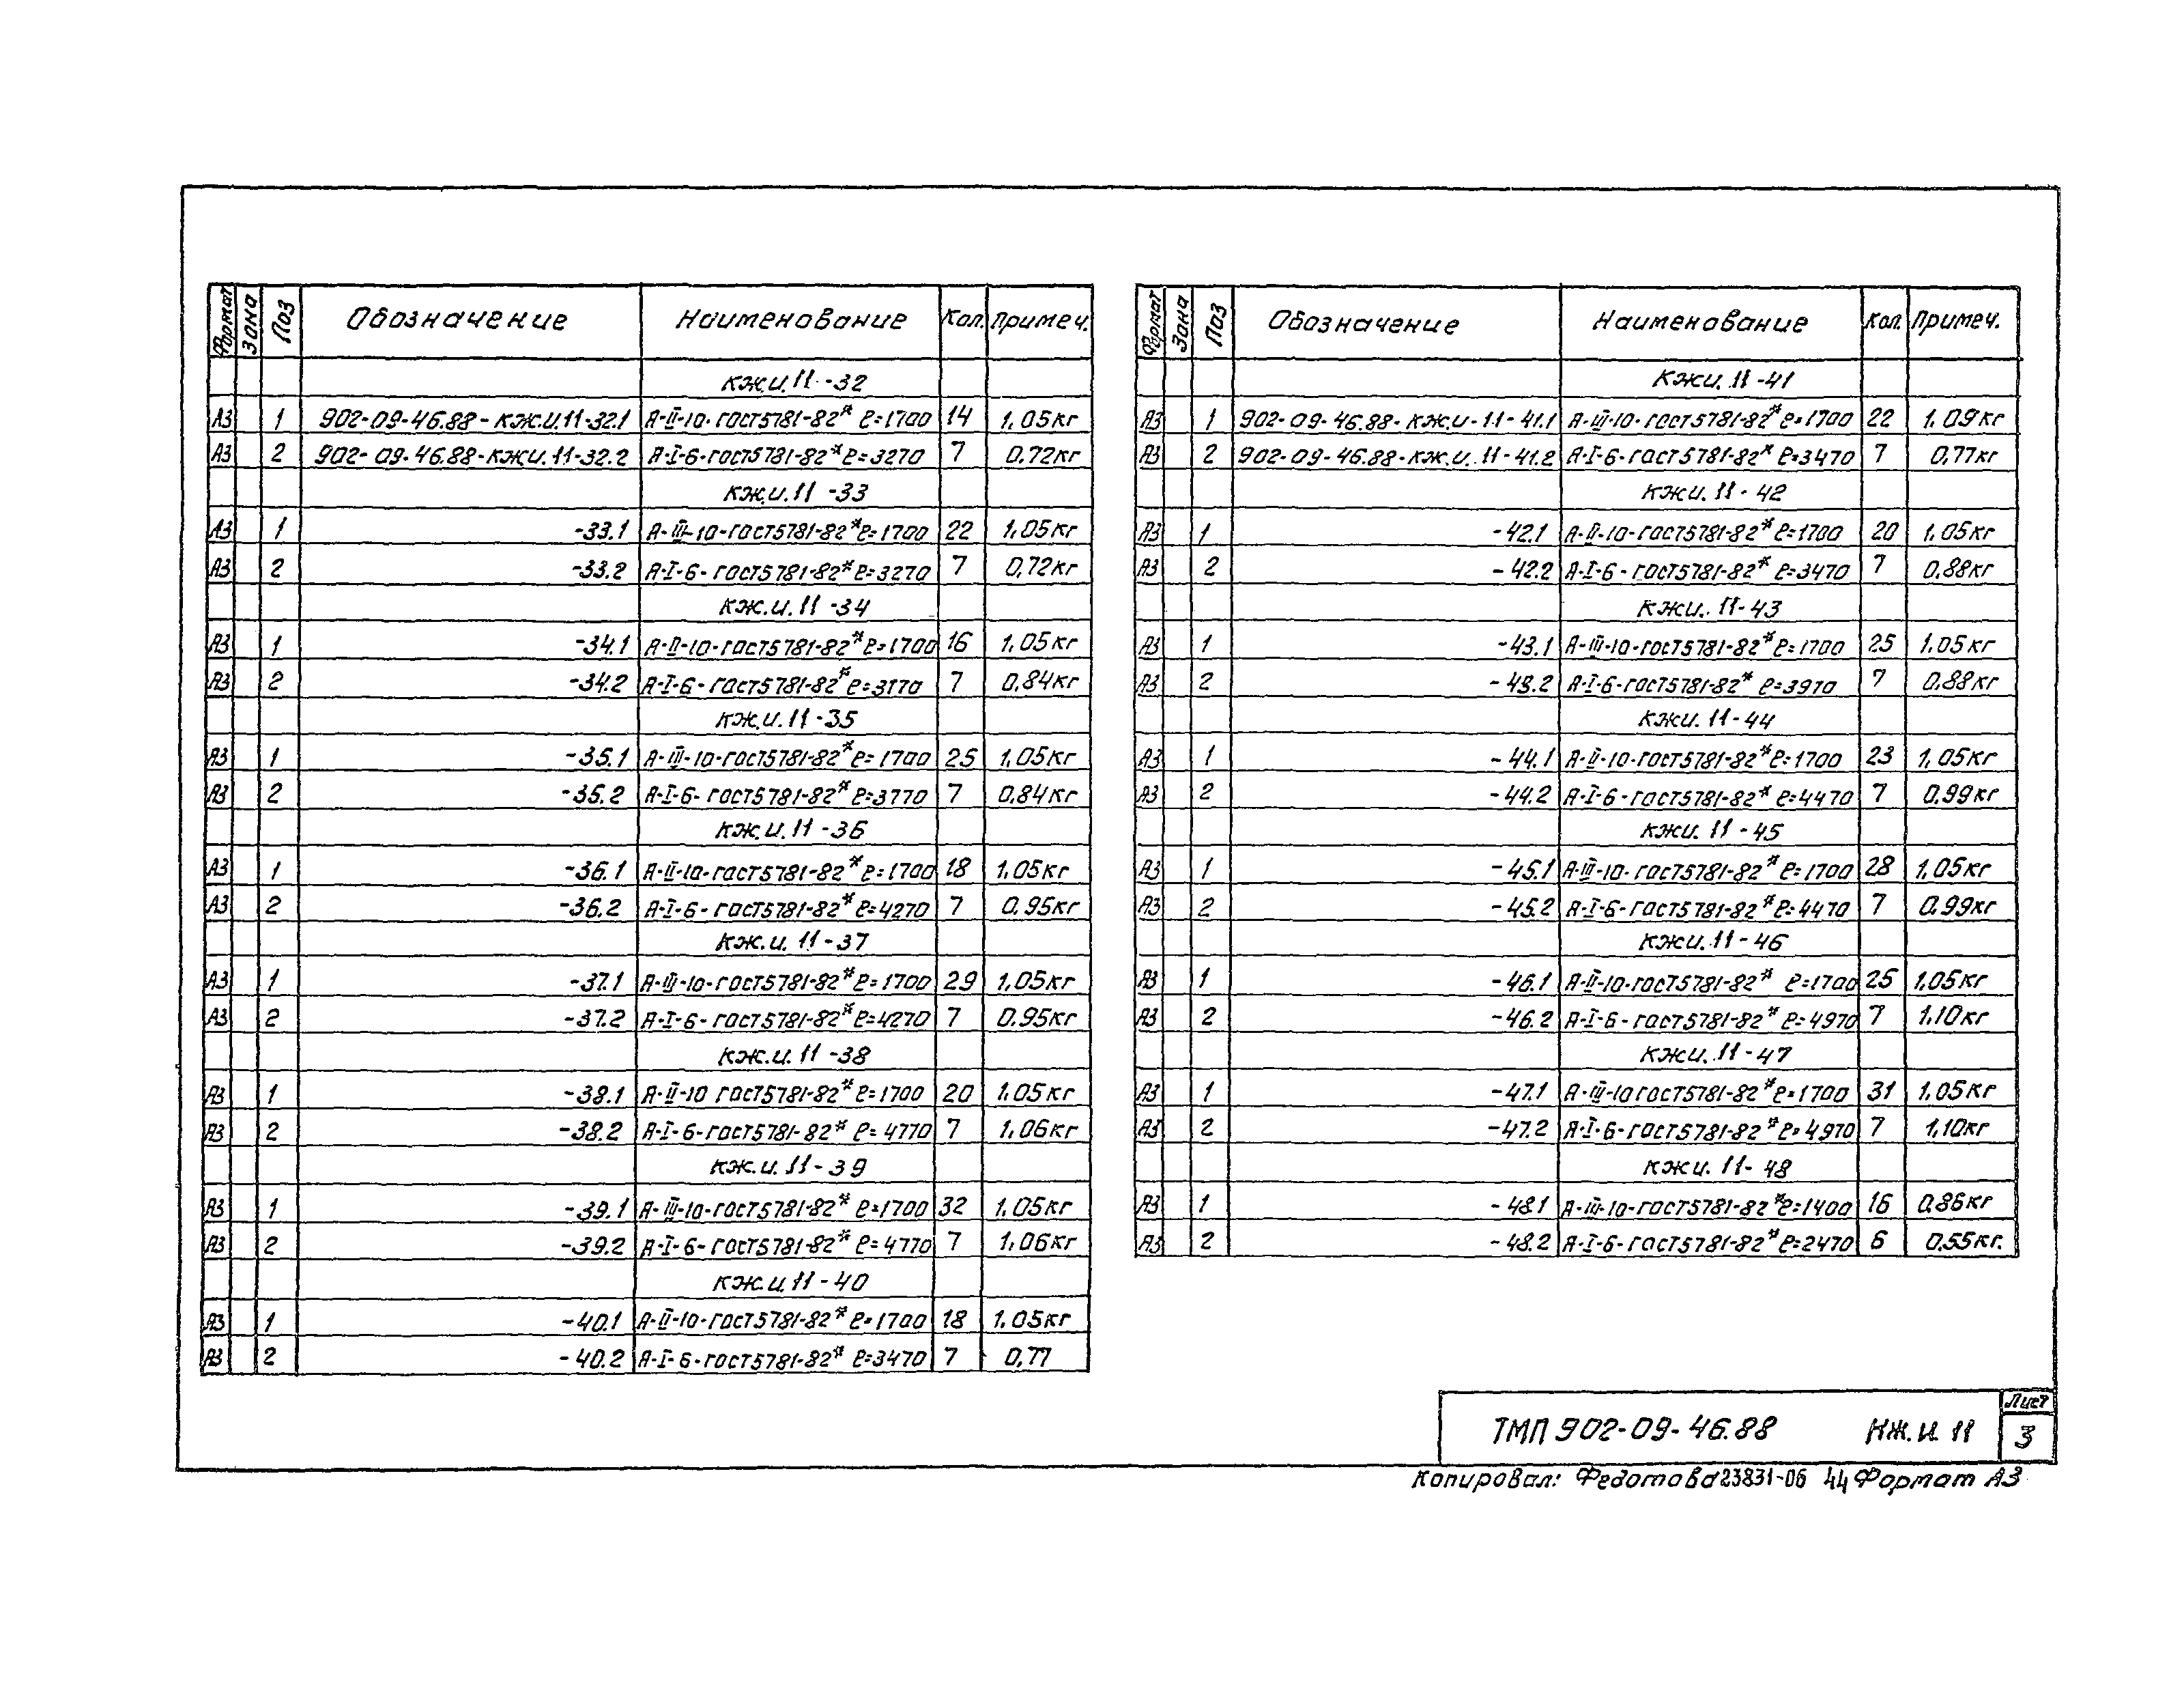 Формат Зона Поз Обозначение Наименование Кол. Примеч.
КЖ.И.11-32
А3 1 902-09-46.88-КЖ.И.11-32.1 А-II-10-ГОСТ5781-82* ℓ=1700 14 1,05кг
А3 2 902-09-46.88-КЖ.И.11-32.2 А-I-6-ГОСТ5781-82* ℓ=3270 7 0.72кг
КЖ.И.11-33
А3 1 -33.1 А-III-10-ГОСТ5781-82* ℓ=1700 22 1,05кг
А3 2 -33.2 А-I-6-ГОСТ5781-82* ℓ=3270 7 0,72кг
КЖ.И.11-34
А3 1 -34.1 А-II-10-ГОСТ5781-82* ℓ=1700 16 1,05кг
А3 2 -34.2 А-I-6-ГОСТ5781-82* ℓ=3170 7 0,84кг
КЖ.И.11-35
А3 1 -35.1 А-III-10-ГОСТ5781-82* ℓ=1700 25 1,05кг
А3 2 -35.2 А-I-6-ГОСТ5781-82* ℓ=3770 7 0,84кг
КЖ.И.11-36
А3 1 -36.1 А-II-10-ГОСТ5781-82* ℓ=1700 18 1,05кг
А3 2 -36.2 А-I-6-ГОСТ5781-82* ℓ=4270 7 0.95кг
КЖ.И.11-37
А3 1 -37.1 А-III-10-ГОСТ5781-82* ℓ=1700 29 1,05кг
А3 2 -37.2 А-I-6-ГОСТ5781-82* ℓ=4270 7 0.95кг
КЖ.И.11-38
А3 1 -38.1 А-II-10 ГОСТ5781-82* ℓ=1700 20 1,05кг
А3 2 -38.2 А-I-6-ГОСТ5781-82* ℓ=4770 7 1,06кг
КЖ.И.11-39
А3 1 -39.1 А-III-10-ГОСТ5781-82* ℓ=1700 32 1,05кг
А3 2 -39.2 А-I-6-ГОСТ5781-82* ℓ=4770 7 1,06кг
КЖ.И.11-40
А3 1 -40.1 А-II-10-ГОСТ5781-82* ℓ=1700 18 1,05кг
А3 2 -40.2 А-I-6-ГОСТ5781-82* ℓ=3470 7 0,77
Формат Зона Поз Обозначение Наименование Кол. Примеч.
КЖИ.11-41
А3 1 902-09-46.88-КЖ.И-11-41.1 А-III-10-ГОСТ5781-82* ℓ=1700 22 1,09кг
А3 2 902-09-46.88-КЖ.И.11-41.2 А-I-6-ГОСТ5781-82* ℓ=3470 7 0,77кг
КЖИ.11-42
А3 1 -42.1 А-II-10-ГОСТ5781-82* ℓ=1700 20 1,05кг
А3 2 -42.2 А-I-6-ГОСТ5781-82* ℓ=3470 7 0.88кг
КЖИ.11-43
А3 1 -43.1 А-III-10-ГОСТ5781-82* ℓ=1700 25 1,05кг
А3 2 -43.2 А-I-6-ГОСТ5781-82* ℓ=3970 7 0.88кг
КЖИ.11-44
А3 1 -44.1 А-II-10-ГОСТ5781-82* ℓ=1700 23 1,05кг
А3 2 -44.2 А-I-6-ГОСТ5781-82* ℓ=4470 7 0.99кг
КЖИ.11-45
А3 1 -45.1 А-III-10-ГОСТ5781-82* ℓ=1700 28 1,05кг
А3 2 -45.2 А-I-6-ГОСТ5781-82* ℓ=4470 7 0.99кг
КЖИ.11-46
А3 1 -46.1 А-II-10-ГОСТ5781-82* ℓ=1700 25 1,05кг
А3 2 -46.2 А-I-6-ГОСТ5781-82* ℓ=4970 7 1,10кг
КЖИ.11-47
А3 1 -47.1 А-III-10 ГОСТ5781-82* ℓ=1700 31 1,05кг
А3 2 -47.2 А-I-6-ГОСТ5781-82* ℓ=4970 7 1,10кг
КЖИ.11-48
А3 1 -48.1 А-III-10-ГОСТ5781-82* ℓ=1400 16 0.86кг
А3 2 -48.2 А-I-6-ГОСТ5781-82* ℓ=2470 6 0.55кг.
ТМП 902-09-46.88 КЖ.И.11
Лист
3
Копировал: Федотова 23831-06 44 Формат А3